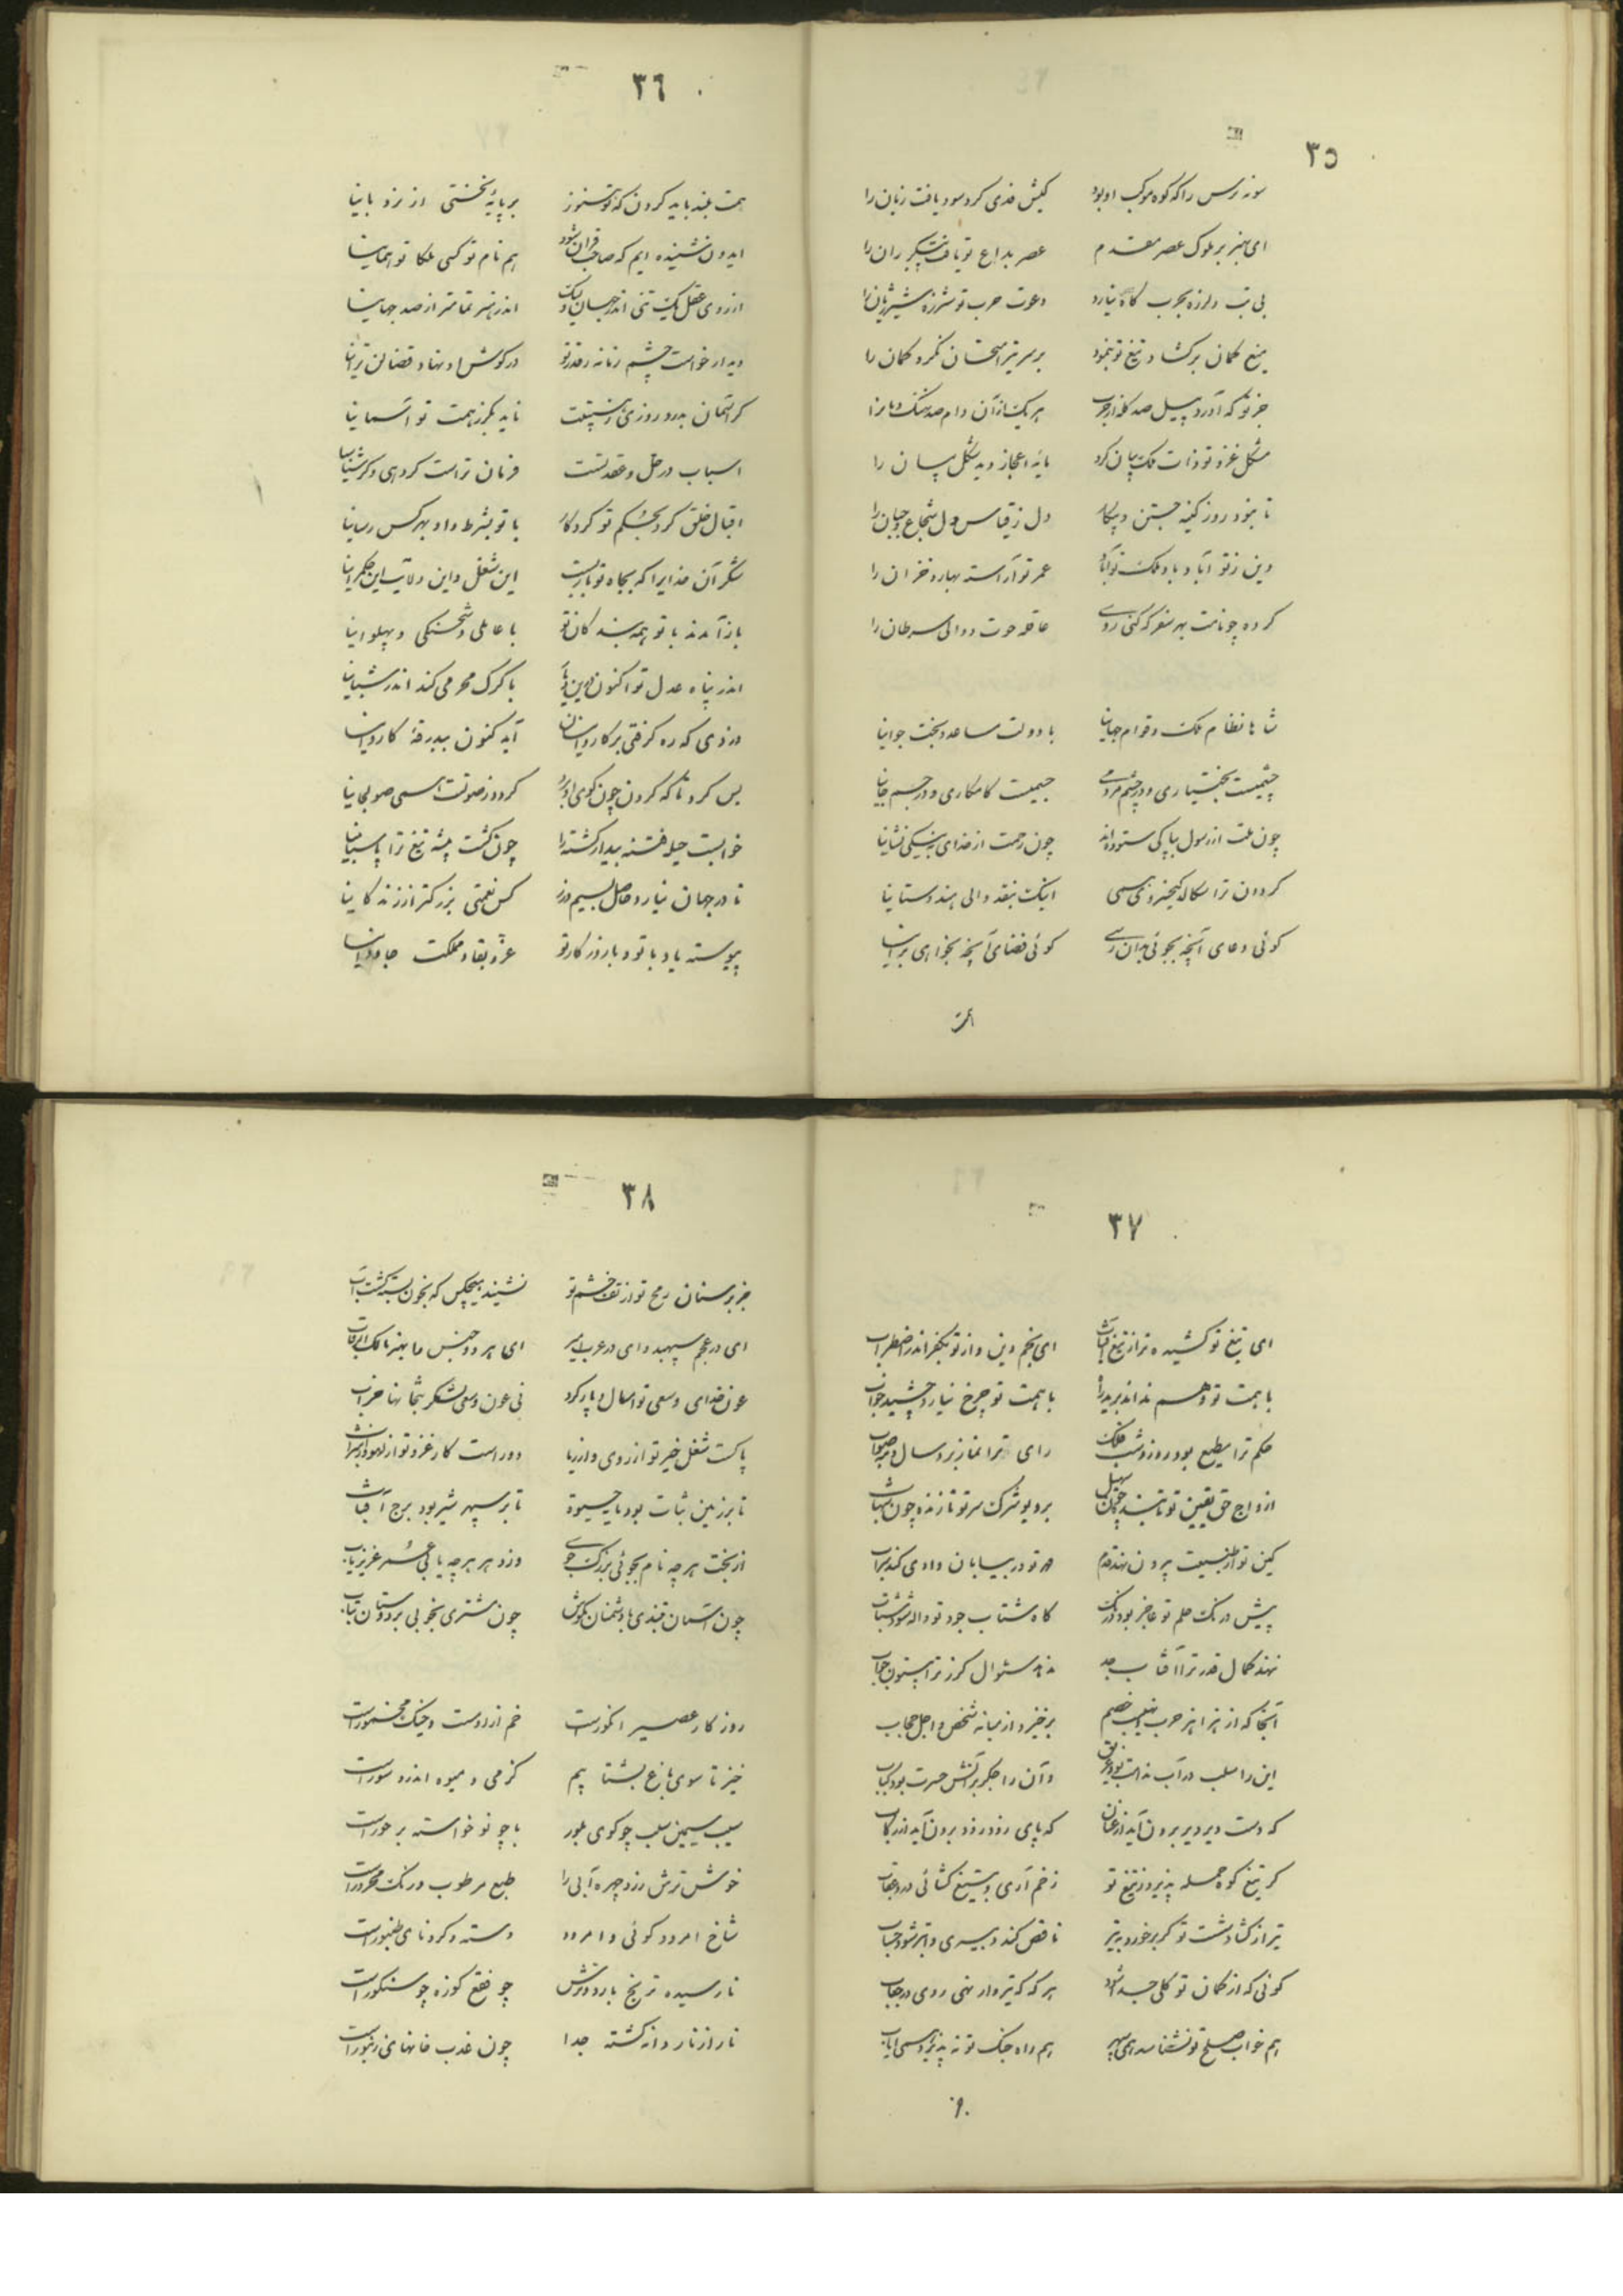 ۳۵
سونه برس را که کوه موکب او بود کیش فدی کرد سود یافت زیان را
ای هنر بر ملوک عصر مقدم عصر بداع تو یافت پیکر ران را
بی تب و لرزه بحرب گاه نیارد دعوت حرب تو شرزه شیر ژیان را
میغ کمان برکشاد تیغ تو بنمود بر سر تیر امتحان نکرد کمان را
جز تو که آورد پیل صد کله از حرب هر یک از آن دام صد نهنگ دمان را
مشکل غزو تو ذات ملک بیان کرد مایه اعجاز دید شکل بیان را
تا نبود روز کینه جستن و پیکار دل ز قیاس دل شجاع جبان را
دین ز تو آباد باد و ملک تو آباد عمر تو آراسته بهار و خزان را
کرده چو نامت بهر سفر که کنی روی عاقد حوت و والی سرطان را
شاها نظام ملک و قوام جهانیا با دولت مساعد و بخت جوانیا
چشمیست بختیاری و در چشم مردمی جسمیست کامکاری و در جسم جانیا
چون ملت از رسول بپاکی ستوده‌اند چون رحمت از خدای به نیکی نشانیا
کردون ترا سکالد کیخسروی همی اینک بنقد والی هندوستانیا
کوئی دعای آنچه بجوئی بدان رسی کوئی قضای آنچه بخواهی برانیا
۳۶
همت بلند باید کردن که تو هنوز بر پایه نخستی از نردبانیا
ایدون شنیده ایم که صاحب قران شود هم نام تو کسی ملکا تو همانیا
از روی عقل یک تنی اندر جهان ولیک اندر هنر تمامتر از صد جهانیا
دیدار خواست چشم زمانه ز قدر تو در گوش او نهاد قضا لن ترانیا
کر آسمان بدرد روزی ز هیبتت ناید بکرز همت تو آسمانیا
اسباب در حل و عقد تست فرمان تراست کردهی و کر ستانیا
اقبال خلق کرد بحکم تو کردکار با تو بشرط داد بهر کس رسانیا
شکر آن خدایرا که بجاه تو باز بست این شغل و این ولایت این حکمرانیا
باز آمدند با تو همه بندکان تو با عاملی و شحنکی و پهلوانیا
اندر پناه عدل تو اکنون در این دیار با کرک محرمی کند اندر شبانیا
دزدی که ره کرفتی بر کاروانیان آید کنون ببدرقهٔ کاروانیا
بس کرد تا که کردن چون کوی او برد کردد ز صولت همی صولجانیا
خوابست حیله فتنه بیدار کشته را چون کشت پیشه تیغ ترا پاسبانیا
تا در جهان نیارد حاصل بسیم و زر کس نعمتی بزرکتر از زندکانیا
پیوسته باد با تو و با روزکار تو عز و بقا و مملکت جاودانیا
۳۷
ای تیغ تو کشیده تر از تیغ آفتاب ای نجم دین و از تو بکفر اندر اضطراب
با همت تو وهم نداند برید راه با همت تو چرخ نیارد چشید خواب
حکم ترا مطیع بود روز و شب فلک رای ترا نماز برد سال و مه صواب
از واج حق یقین تو تابنده چون سهیل بر دیو شرک سر تو تازنده چون شهاب
کین تو از طبیعت بیرون نهد قدم مهر تو در بیابان وادی کند سراب
پیش درنک حلم تو عاجز بود درنک کاه شتاب جود تو واله شود شتاب
نهند کمال قدر ترا آفتاب حد ندهد سئوال کرز ترا بیستون جواب
آنجا که از هزاهز حرب و نهیب خصم برخیزد از میانه شخص و اجل حجاب
این را سلب در آب ندامت بود غریق وآن را جکر بر آتش حسرت بود کباب
که دست دیر دیر برون آید از عنان که پای زود زود برون آید از رکاب
کر تیغ کوه حمله پذیرد ز تیغ تو زخم آری و بتیغ کشائی در و عقاب
تیر از کشاد شست تو کر بر خورد بتیر ناقص کند دبیری و ابتر شود حساب
کوئی که از کمان تو کلی جدا شود هر که که تیر وار نهی روی در حجاب
هم خواب صلح تو نشناسد همی سهر هم راه جنک تو نه پذیرد همی ایاب
۳۸
جز بر سنان رمح تو از تف خشم تو نشنید هیچکس که بخون بسته کشت آب
ای در عجم سپهبد و ای در عرب امیر ای هر دو جنس را بهنر مالک الرقاب
عون خدای و سعی تو امسال و پار کرد نی عون و سعی لشکر بتخانها خراب
پاکست شغل خیر تو از روی و از ریا دور است کار غزو تو از لهو و از شراب
تا بر زمین ثبات بود مایه حیوة تا بر سپهر شیر بود برج آفتاب
از بخت هر چه نام بجوئی بزرک جوی وز دهر هر چه یابی عمر عزیز یاب
چون آسمان بتندی با دشمنان بکوش چون مشتری بخوبی بر دوستان بتاب
روزکار عصیر انکورست خم ازو مست و چنک مخمورست
خیز تا سوی باغ بشتابیم کز می و میوه اندرو سورست
سیب سیمین سلب چو کوی بلور با چو نو خواسته بر حورست
خوش ترش رز و چهره آبی را طبع مرطوب و رنک محرورست
شاخ امرود کوئی و امرود دسته و کرد نای طنبورست
نارسیده ترنج بار ورش چو فقع کوزه چو سنکورست
نار از نار دانه کشته جدا چون غدب خانهای زنبورست